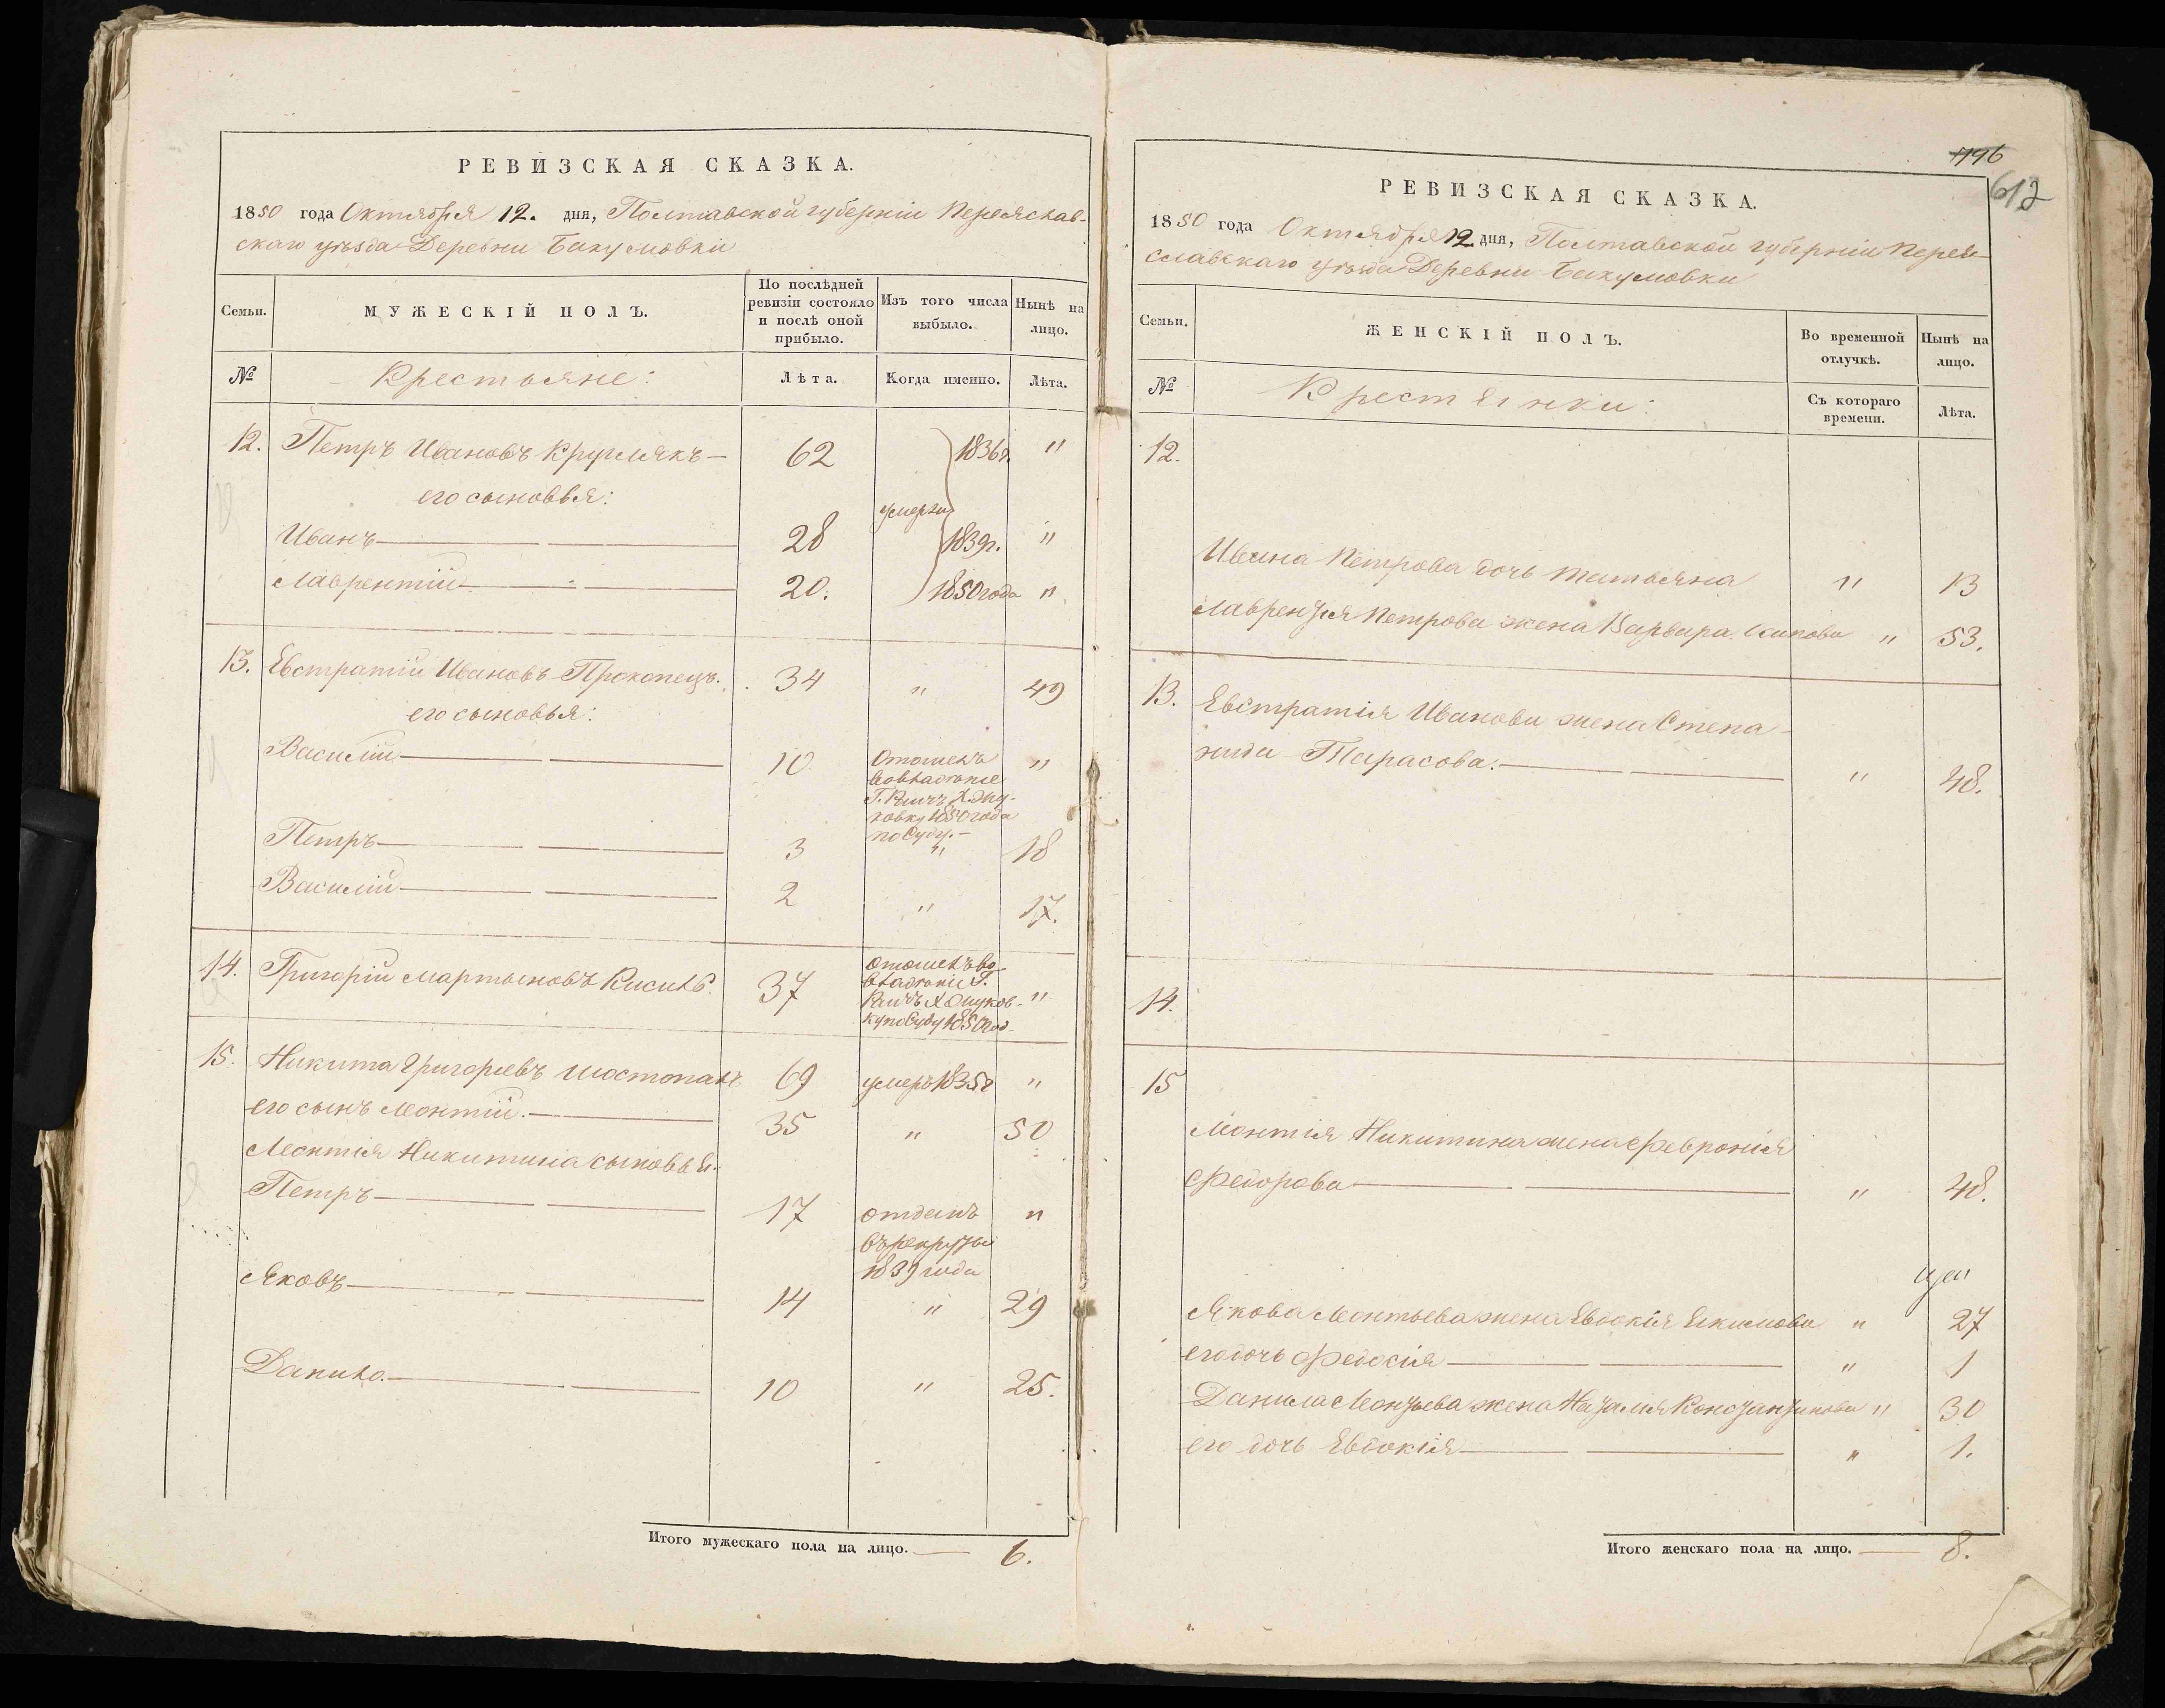 РЕВИЗСКАЯ СКАЗКА.
1850 года Октября 12. дня, Полтавской губерніи Переяслав-
скаго уѣзда Деревни Бакумовки
Семьи.
МУЖЕСКІЙ ПОЛЪ.
По послѣдней
ревизіи состояло
и послѣ оной
прибыло.
Изъ того числа
выбыло.
Нынѣ на
лицо.
№
Крестьяне:
Лѣта.
Когда именно.
Лѣта.
12. Петръ Ивановъ Круглякъ 62 1836г. "
его сыновья:
умерли
Иванъ 28 1839г. "
Лаврентій 20. 1850 года "
13. Евстратій Ивановъ Прокопецъ. 34 " 49
его сыновья:
Василій 10 Отошелъ "
во владѣніе
1850 года
по Суду.
Петръ 3 " 18
Василій 2 " 17.
14. Григорій Мартыновъ Кисиль. 37 отошелъ во
владѣніе Г.
"
по Суду 1850 год
15. Никита Григорьевъ Шостопалъ 69 умеръ 1835г "
его сынъ Леонтій. 35 " 50
Леонтія Никитина сыновья.
Петръ 17 отданъ "
въ рекруты
1839 года
Яковъ 14 " 29
Данило. 10 " 25.
Итого мужескаго пола на лицо. 6.
196
612
РЕВИЗСКАЯ СКАЗКА.
1850 года Октября 12 дня, Полтавской губерніи Перея-
славскаго уѣзда Деревни Бакумовки
Семьи.
ЖЕНСКІЙ ПОЛЪ.
Во временной
отлучкѣ.
Нынѣ на
лицо.
№
Крестьянки:
Съ котораго
времени.
Лѣта.
12.
Ивана Петрова дочь Татьяна " 13
Лаврентія Петрова жена Варвара " 53.
13. Евстратія Иванова жена Степа-
нида Тарасова. " 48.
14.
15
Леонтія Никитина жена Февронія
Федорова " 48.
Якова Леонтьева жена Евдокія Екимова " 27
его дочь Федосія " 1
Данила Леонтьева жена Наталія Константинова " 30
его дочь Евдокія " 1.
Итого женскаго пола на лицо. 8.